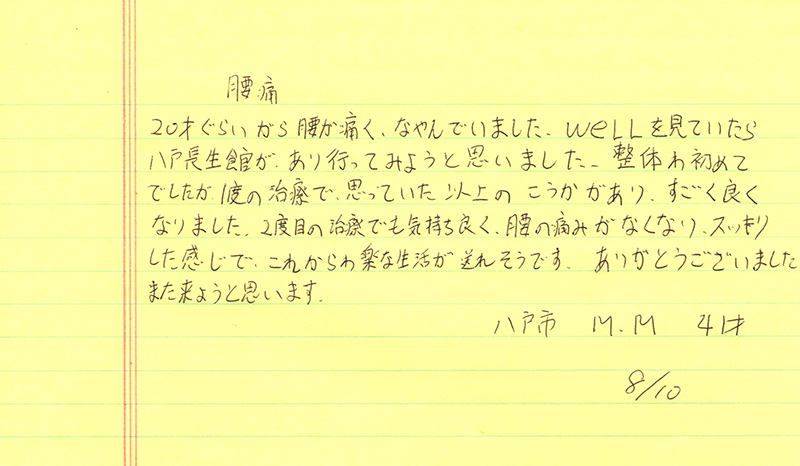 腰痛
20才ぐらいから腰が痛く、なやんでいました、weLLを見ていたら
八戸長生館が、あり行ってみようと思いました、整体わ初めて
でしたが、1度の治療で、思っていた以上のこうかがあり、すごく良く
なりました。2度目の治療でも気持ち良く、腰の痛みがなくなり、スッキリ
した感じで、これからわ楽な生活が送れそうです。ありがとうございました
また来ようと思います。
八戸市 M.M 41才
8/10